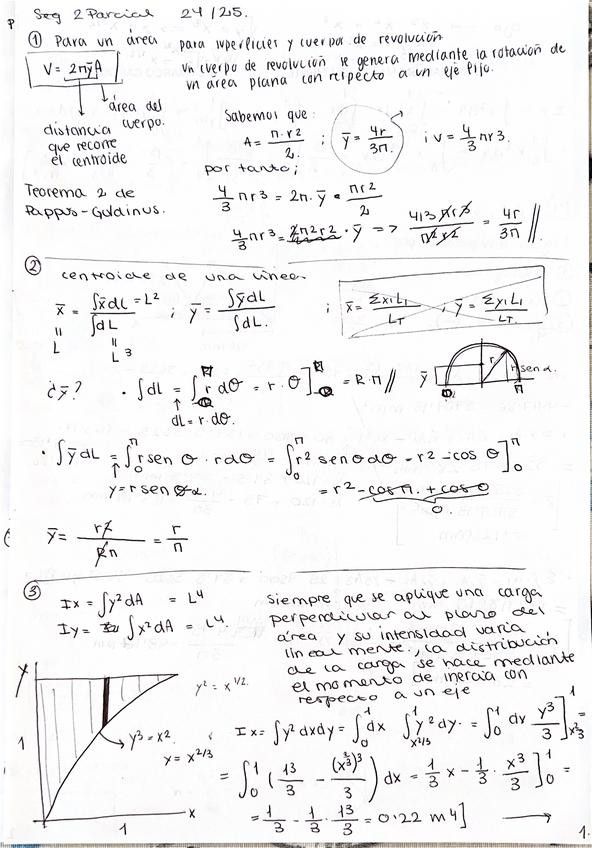 Seg 2 Parcial 24/25.
① Para un área para superficies y cuerpos de revolución
V = 2πȳA un cuerpo de revolución se genera mediante la rotación de
un área plana con respecto a un eje fijo.
área del
cuerpo.
distancia
que recorre
el centroide
Sabemos que:
A = π·r2/2 ; ȳ = 4r/3π ; V = 4/3 πr3.
por tanto;
Teorema 2 de
Pappus-Guldinus.
4/3 πr3 = 2π·ȳ · πr2/2
4/3 πr3 = 2π2r2/2 · ȳ => 4/3 πr3/π2r2 = 4r/3π //
② centroide de una línea.
x̄ = ∫x̄dL/∫dL = L2 ; ȳ = ∫ȳdL/∫dL. ; x̄ = Σx1L1/LT ; ȳ = Σy1L1/LT.
L
L3
¿ȳ? · ∫dL = ∫ r dθ = r·θ] = R·π //
dL = r·dθ.
ȳ r r sen α. π
· ∫ȳdL = ∫0π r sen θ · rdθ = ∫0π r2 sen θ dθ = r2 -cos θ]0π
y = r sen α. = r2 -cos π. + cos 0
0.
ȳ = r2/Rπ = r/π
③
Ix = ∫y2dA = L4
Iy = ∫x2dA = L4.
siempre que se aplique una carga
perpendicular al plano del
área y su intensidad varia
linealmente, la distribución
de la carga se hace mediante
el momento de inercia con
respecto a un eje
y
y2 = x1/2.
1
y3 = x2.
y = x2/3
x
1
Ix = ∫y2dxdy = ∫01 dx ∫x2/31 y2dy. = ∫01 dx y3/3]x2/31 =
= ∫01 (13/3 - (x2/3)3/3) dx = 1/3 x - 1/3 · x3/3]01 =
= 1/3 - 1/3 · 13/3 = 0'22 m4]
1.